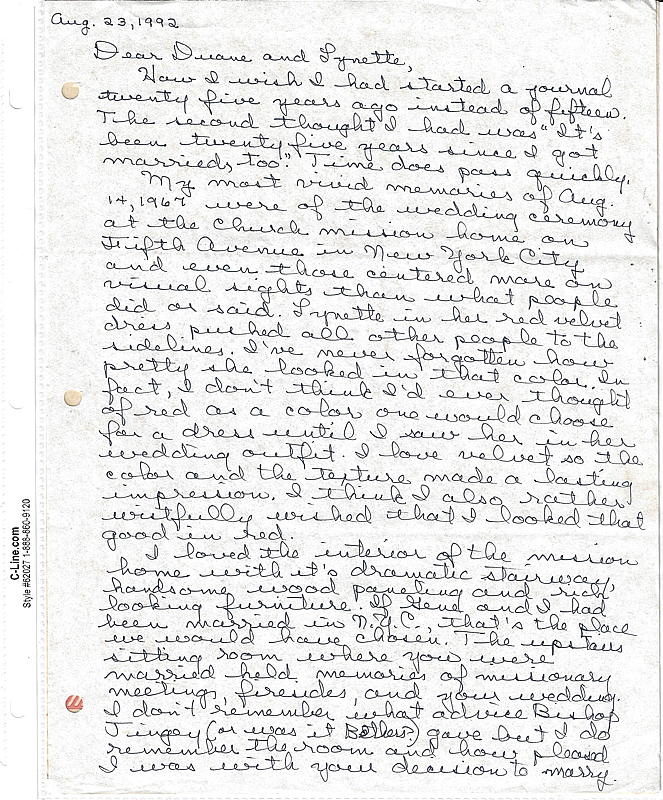 Aug. 23, 1992
Dear Duane and Lynette,
How I wish I had started a journal
twenty five years ago instead of fifteen.
The second thought I had was "It's
been twenty five years since I got
married, too." Time does pass quickly.
My most vivid memories of Aug.
14, 1967 were of the wedding ceremony
at the Church mission home on
Fifth Avenue in New York City
and even those centered more on
visual sights than what people
did or said. Lynette in her red velvet
dress pushed all other people to the
sidelines. I've never forgotten how
pretty she looked in that color. In
fact, I don't think I'd ever thought
of red as a color one would choose
for a dress until I saw her in her
wedding outfit. I love velvet so the
color and the texture made a lasting
impression. I think I also rather
wistfully wished that I looked that
good in red.
I loved the interior of the mission
home with it's dramatic stairway,
handsome wood paneling and rich
looking furniture. If Gene and I had
been married in N.Y.C., that's the place
we would have chosen. The upstairs
sitting room where you were
married held memories of missionary
meetings, firesides, and your wedding.
I don't remember what advice Bishop
Tingey (or was it ) gave but I do
remember the room and how pleased
I was with your decision to marry.
C-Line.com
Style #62027 1-888-860-9120